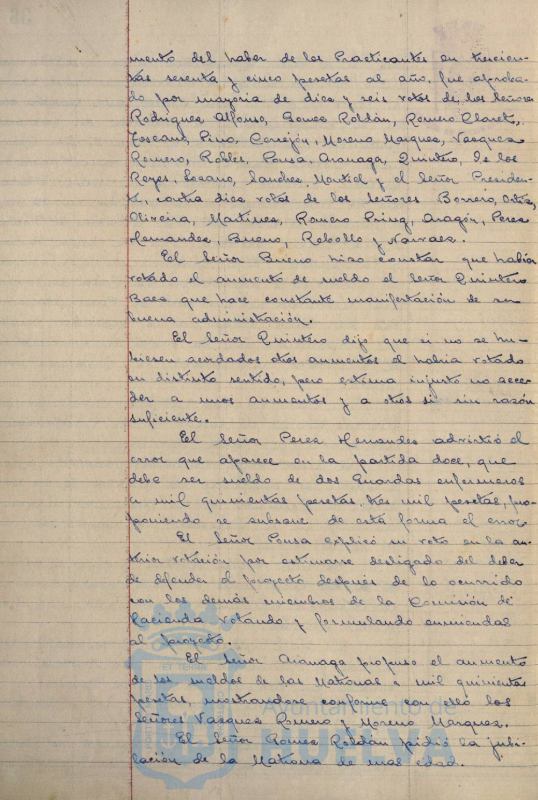 mento del haber de los Practicantes en trescien-
tas sesenta y cinco pesetas al año, fue aproba-
do por mayoria de diez y seis votos de los Señores
Rodriguez, Alfonso, Gomez Roldán, Romero Claret,
Toscano, Pino, Correjón, Moreno Marquez, Vazquez
Romero, Robles, Ponsa, Aranaga, Quintero, De los
Reyes, Lozano, Sanchez Montiel y el Señor Presiden-
te, contra diez votos de los Señores Borrero, Ortiz,
Oliveira, Martinez, Romero Pring, Aragón, Perez
Hernandez, Bueno, Rebollo y Narvaez.
El Señor Bueno hizo constar que había
votado el aumento de sueldo el Señor Quintero
Baez que hace constante manifestación de ser
buena administración.
El Señor Quintero dijo que si no se hu-
biesen acordados otros aumentos el habria votado
en distinto sentido, pero estima injusto no acce-
der a unos aumentos y a otros si sin razón
suficiente.
El Señor Perez Hernandez advirtió el
error que aparece en la partida doce, que
debe ser sueldo de dos Guardas enfermeros
a mil quinientas pesetas, tres mil pesetas, pro-
poniendo se subsane de esta forma el error.
El Señor Ponsa explicó su voto en la an-
terior votación por estimarse desligado del deber
de defender el proyecto después de lo ocurrido
con los demás miembros de la Comisión de
Hacienda votando y formulando enmiendas
al proyecto.
El Señor Aranaga propuso el aumento
de los sueldos de las Matronas a mil quinientas
pesetas, mostrandose conforme con ello los
Señores Vazquez Romero y Moreno Marquez.
El Señor Gomez Roldán pidió la jubi-
lación de la Matrona de mas edad.
Ayuntamiento de
HUELVA